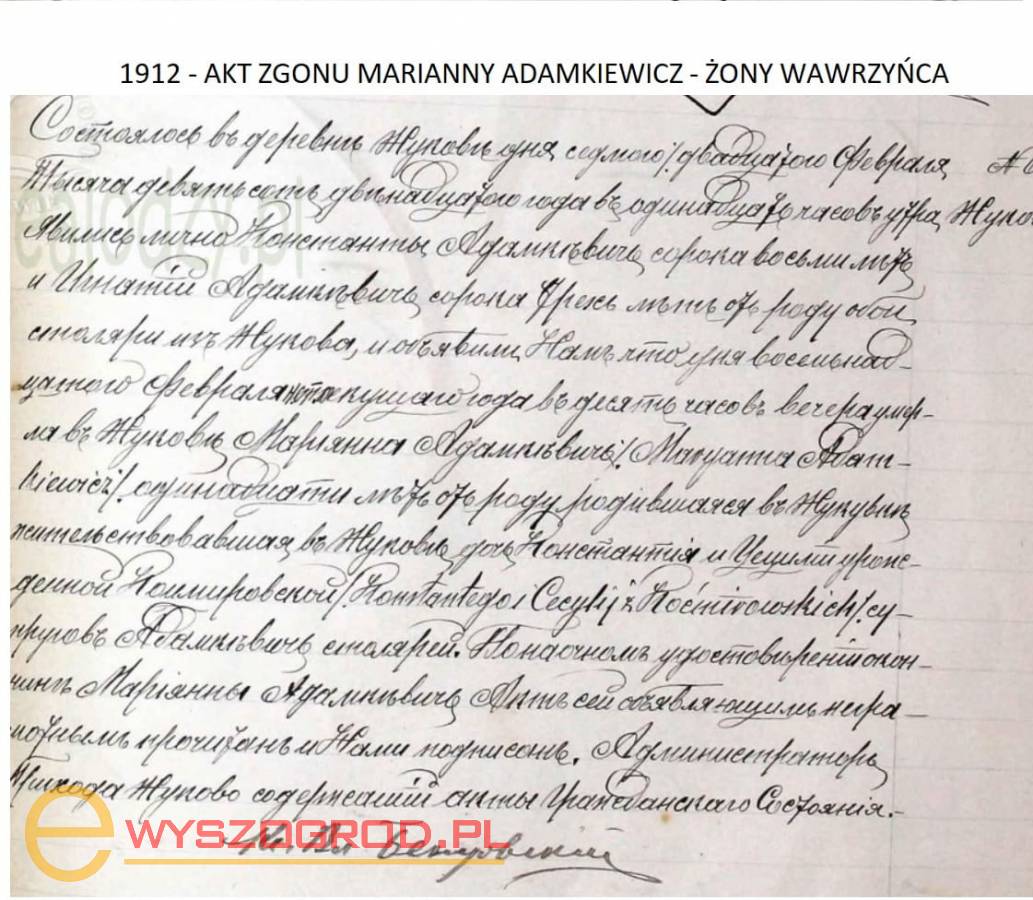 1912 - AKT ZGONU MARIANNY ADAMKIEWICZ - ŻONY WAWRZYŃCA
Состоялось въ деревнѣ Жуковѣ дня седмого /:двадцатого Февраля №
Тысяча девятьсотъ двѣнадцатого года въ одинадцать часовъ утра, Жуко
Явились лично Константы Адамкѣвичъ, сорока восьми лѣтъ
и Игнатій Адамкѣвичъ, сорока трехъ лѣтъ отъ роду обои
столяри изъ Жукова, и объявили Намъ что дня восемнад-
цатого Февраля текущаго года въ десять часовъ вечера умер-
ла въ Жуковѣ Маріянна Адамкѣвичъ /:Maryanna Adam-
kiewicz/: одинадцати лѣтъ отъ роду, родившаяся въ
жительствовавшая въ Жуковѣ, дочь Константія и Цециліи урож-
денной /:Konstantego i Cecylij z Kośmirowskich/: су-
пруговъ Адамкѣвичъ столярей. По наочномъ удостовѣреніи о кон-
чинѣ Маріянны Адамкѣвичъ Актъ сей объявляющимъ негра-
мотнымъ прочитанъ и Нами подписанъ. Администраторъ
Прихода Жуково содержащій акты Гражданскаго Состоянія.-
eWYSZOGROD.PL